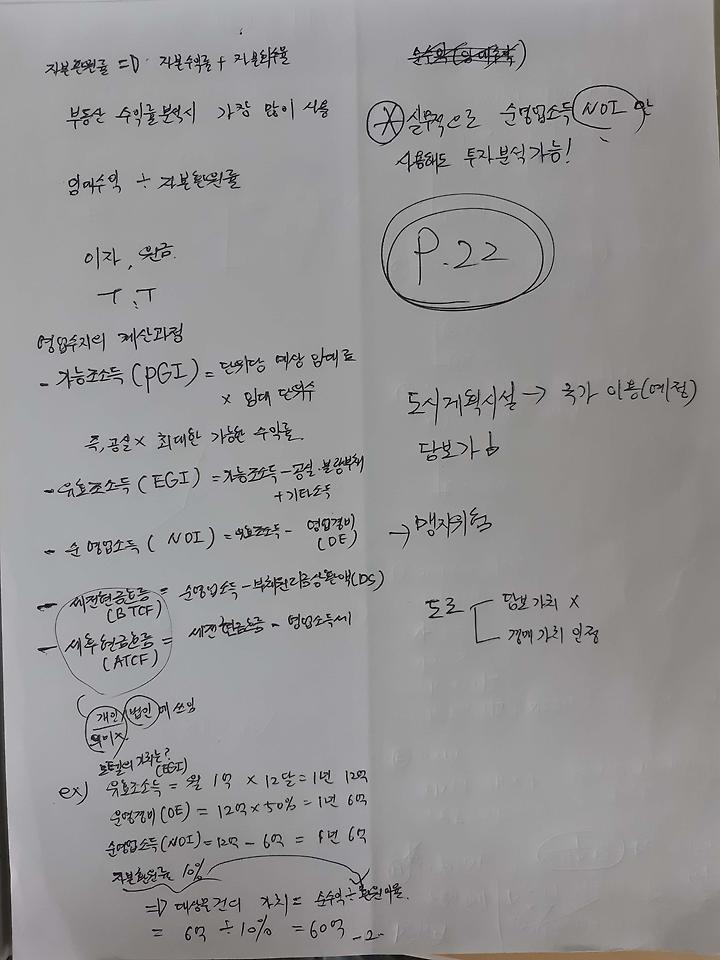 자본환원률 => 자본수익률 + 자본회수율
부동산 수익률분석시 가장 많이 사용
임대수익 ÷ 자본환원률
이자, 원금.
영업수지의 계산과정
- 가능조소득(PGI) = 단위당 예상 임대료
× 임대 단위수
즉, 공실× 최대한 가능한 수익률.
- 유효조소득(EGI) = 가능조소득 - 공실·불량부채
+ 기타소득
- 순영업소득( NOI) = 유효조소득 - 영업경비
(OE)
- 세전현금흐름 = 순영업소득 - 부채원리금상환액(DS)
(BTCF)
- 세후현금흐름 = 세전현금흐름 - 영업소득세
(ATCF)
개인/법인에 쓰임
의미×
호텔의 가치는?
(EGI)
ex) 유효조소득 = 월 1억 × 12달 = 1년 12억
운영경비(OE) = 12억 × 50% = 1년 6억
순영업소득(NOI) = 12억 - 6억 = 1년 6억
자본환원률 10%
=> 대상물건의 가치 = 순수익 ÷ 환원이율.
= 6억 ÷ 10% = 60억
-2-
실무적으로 순영업소득 NOI 만
사용해도 투자분석가능!
P.22
도시계획시설 → 국가 이용(예정)
담보가 ↓
→ 맹지위험
도로
담보가치 ×
경매가치 인정